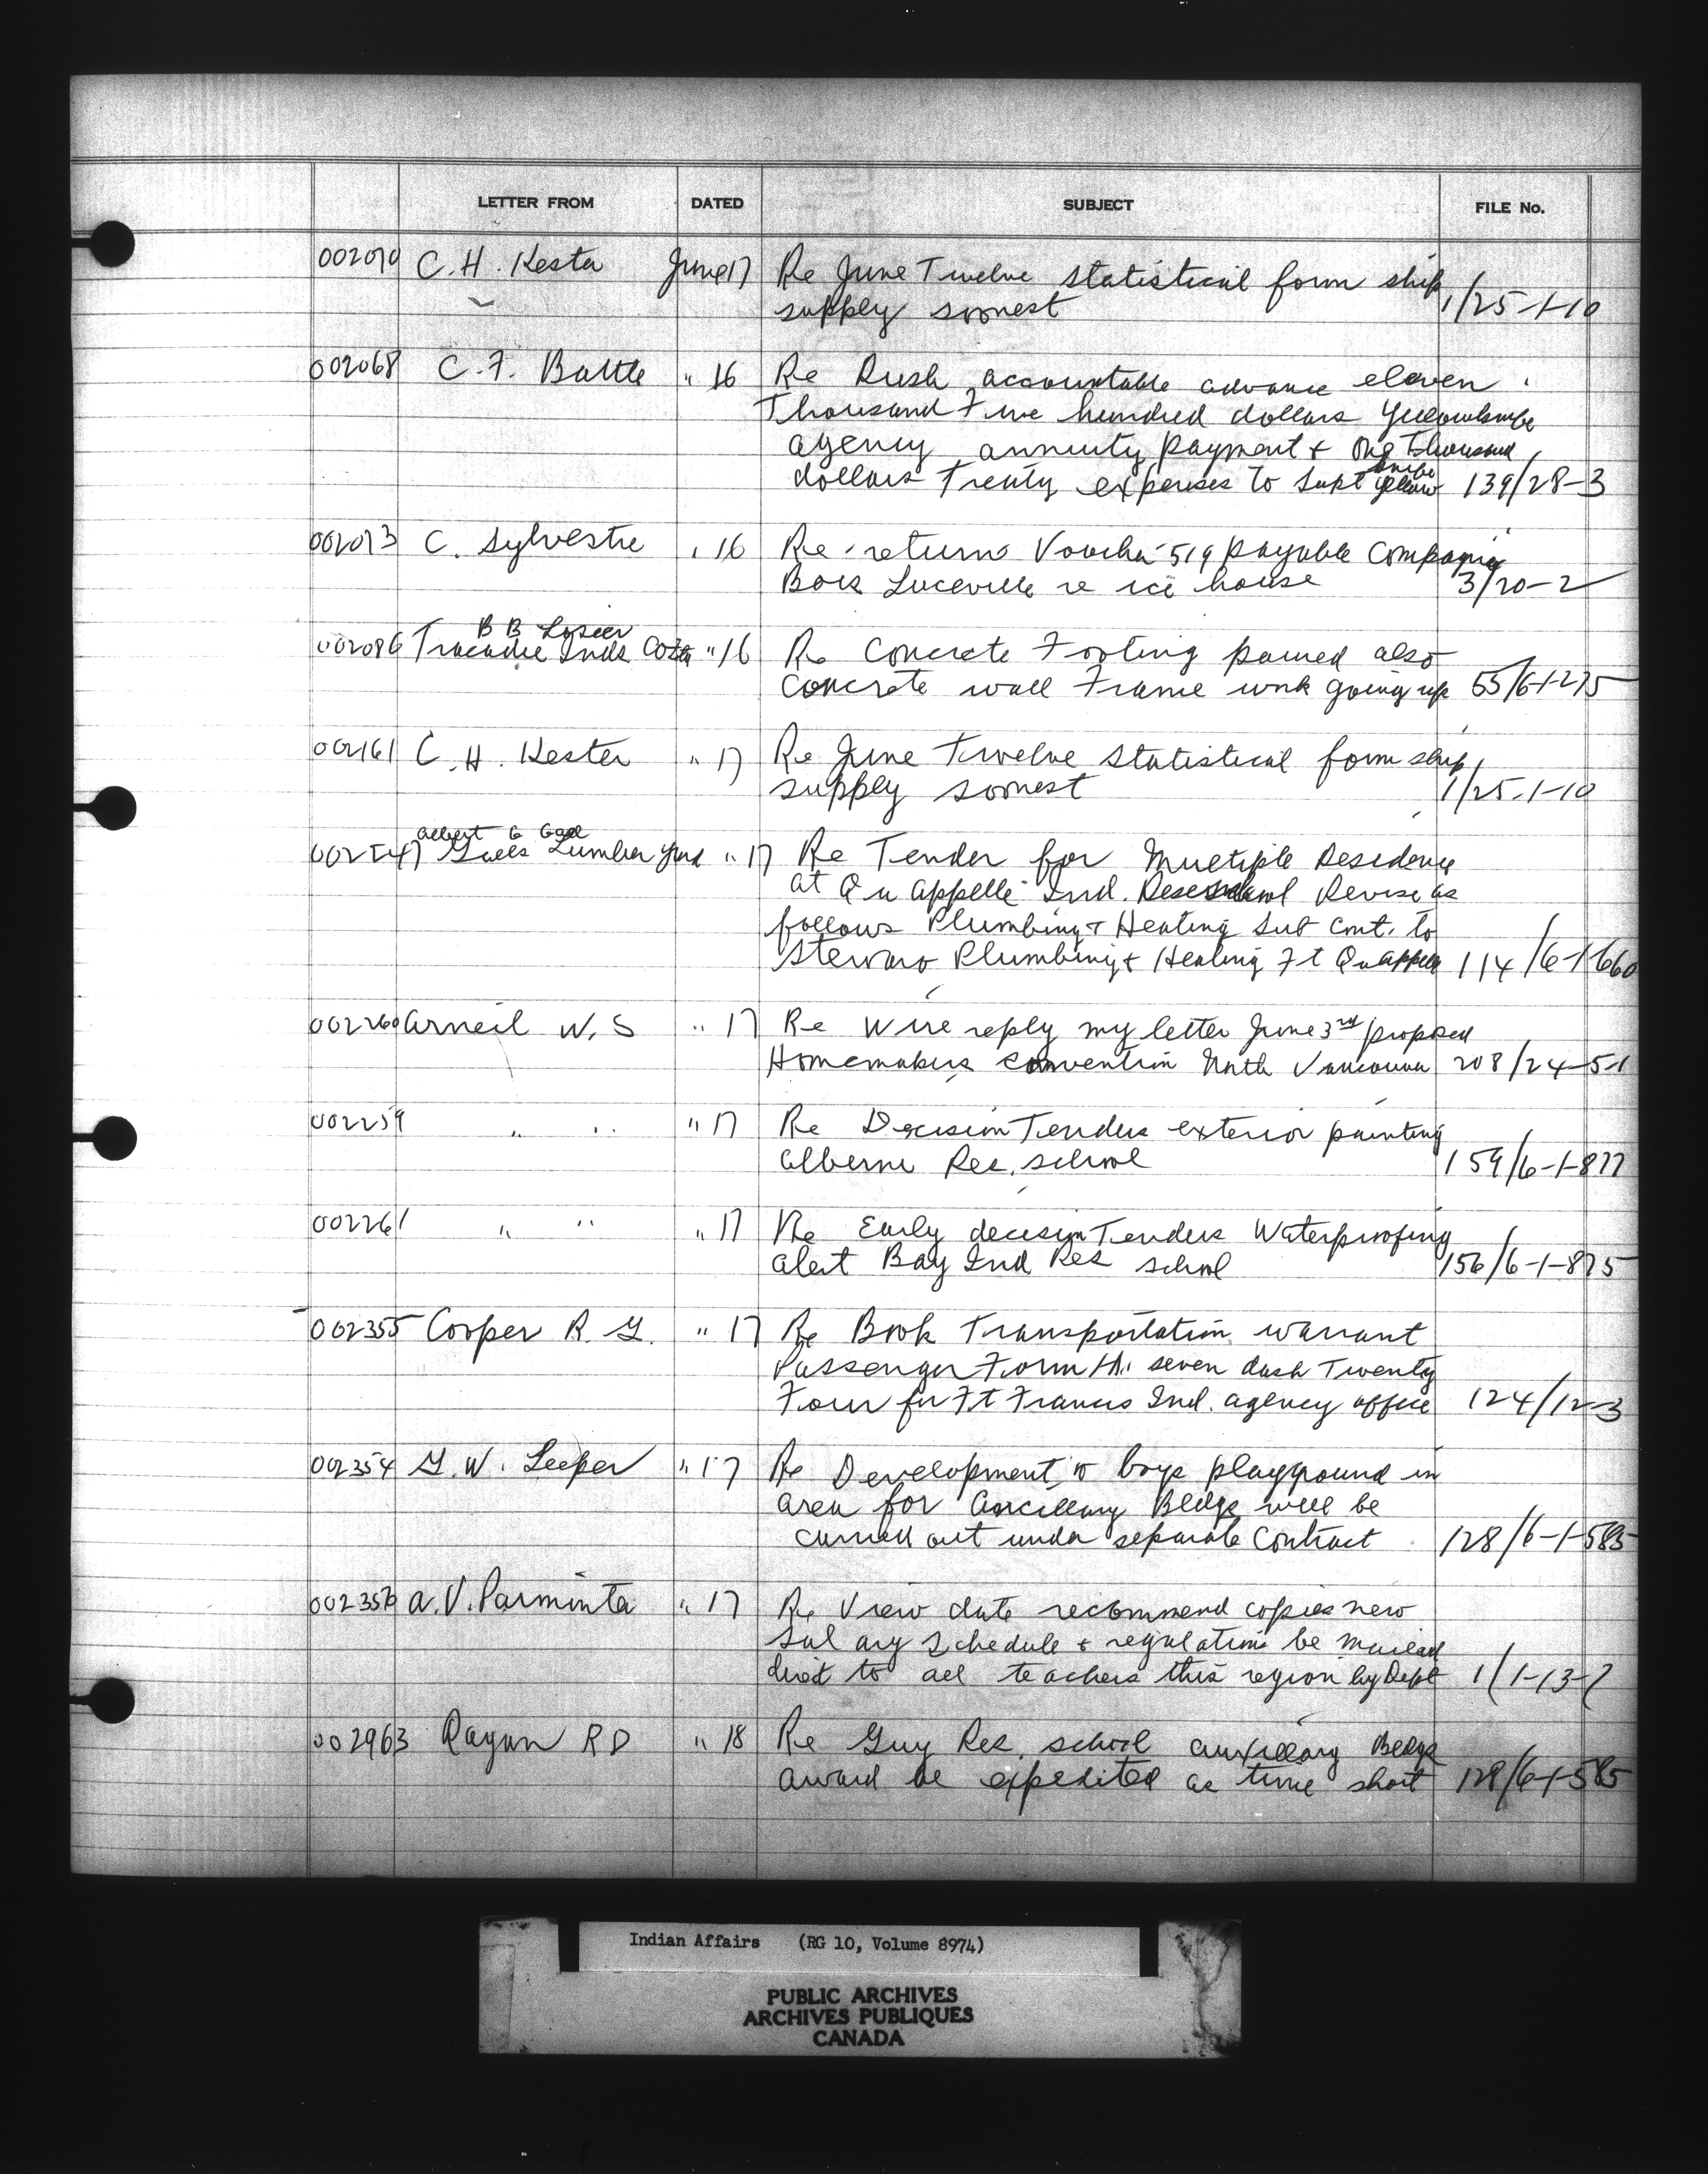 LETTER FROM DATED SUBJECT FILE No.
002070 C. H. Kesta June 17 Re June Twelve statistical form ship
supply soonest 1/25-1-10
002068 C. F. Battle " 16 Re Rush accountable advance eleven
Thousand Five hundred dollars Yellowknife
agency annuity payment + One Thousand
dollars Treaty expenses to Supt Yellow knife 139/28-3
002073 C. Sylvestre " 16 Re returns Voucher 519 payable Compagnie
Bois Luceville re ice house 3/20-2
B B Losier
002086 Tracadie Inds " 16 Re Concrete Footing poured also
concrete wall Frame work going up 55/6-1-275
002161 C. H. Kester " 17 Re June Twelve Statistical form ship
supply soonest 1/25-1-10
Albert G Gael
Lumber Yard " 17 Re Tender for Multiple Residence
at Qu Appelle Ind. Res school Revise as
follows Plumbing + Heating Sub Cont. to
Plumbing + Heating Ft Qu Appelle 114/6-1-660
002260 Arneil W. S " 17 Re Wire reply my letter June 3rd proposed
Homemakers convention North Vancouver 208/24-5-1
002259 " " " 17 Re Decision Tenders exterior painting
Alberni Res. school 159/6-1-877
002261 " " " 17 Re Early decision Tenders Waterproofing
Alert Bay Ind Res school 156/6-1-875
002355 Cooper R. G. " 17 Re Book Transportation warrant
Passenger Form seven dash Twenty
Four for Ft Frances Ind. agency office 124/12-3
002354 G. W. Leeper " 17 Re Development to boys playground in
area for Ancillary Bldgs will be
carried out under separate contract 128/6-1-585
002356 A. V. Parminta " 17 Re View date recommend copies new
salary schedule + regulations be mailed
direct to all teachers this region by Dept 1/1-13-7
002963 Ragan R D " 18 Re Guy Res. school auxillary Bldgs
award be expedited as time short 128/6-1-585
Indian Affairs (RG 10, Volume 8974)
PUBLIC ARCHIVES
ARCHIVES PUBLIQUES
CANADA